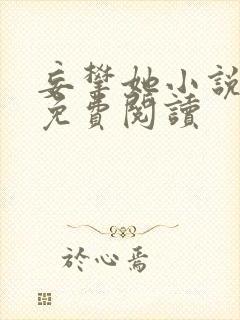 妄攀她小說
免費閱讀
於心焉